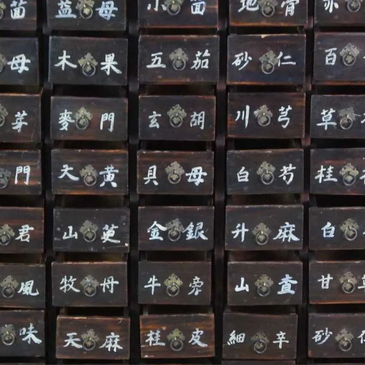 茴 益母 小茴 地骨 赤
母 木果 五茄 砂仁 百
芽 麥門 玄胡 川芎 草
門 天黃 貝母 白芍 桂
君 山 金銀 升麻 白
風 牧丹 牛旁 山查 甘
味 天麻 桂皮 細辛 砂